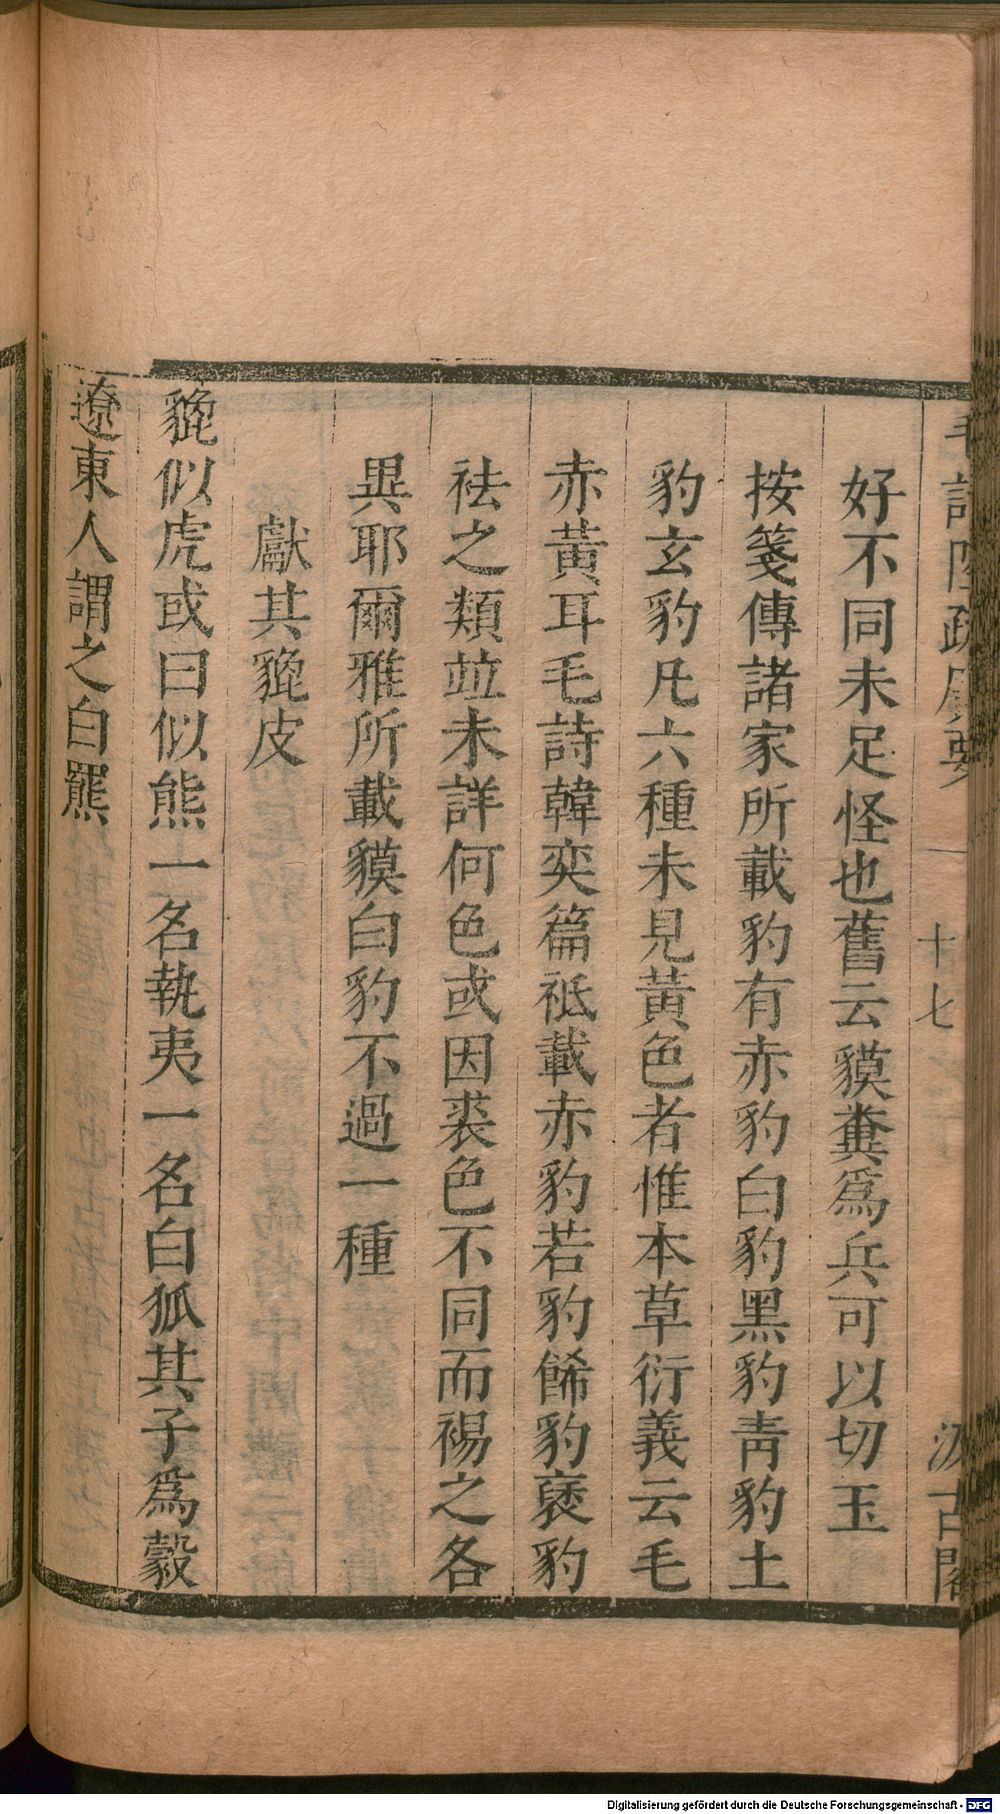 毛詩陸疏廣要 十七 汲古閣
好不同未足怪也舊云貘糞爲兵可以切玉
按箋傳諸家所載豹有赤豹白豹黑豹靑豹土
豹玄豹凡六種未見黃色者惟本草衍義云毛
赤黃耳毛詩韓奕篇祗載赤豹若豹餙豹褎豹
袪之類竝未詳何色或因裘色不同而裼之各
異耶爾雅所載貘白豹不過一種
獻其貔皮
貔似虎或曰似熊一名執夷一名白狐其子爲豰
遼東人謂之白羆
Digitalisierung gefördert durch die Deutsche Forschungsgemeinschaft - DFG